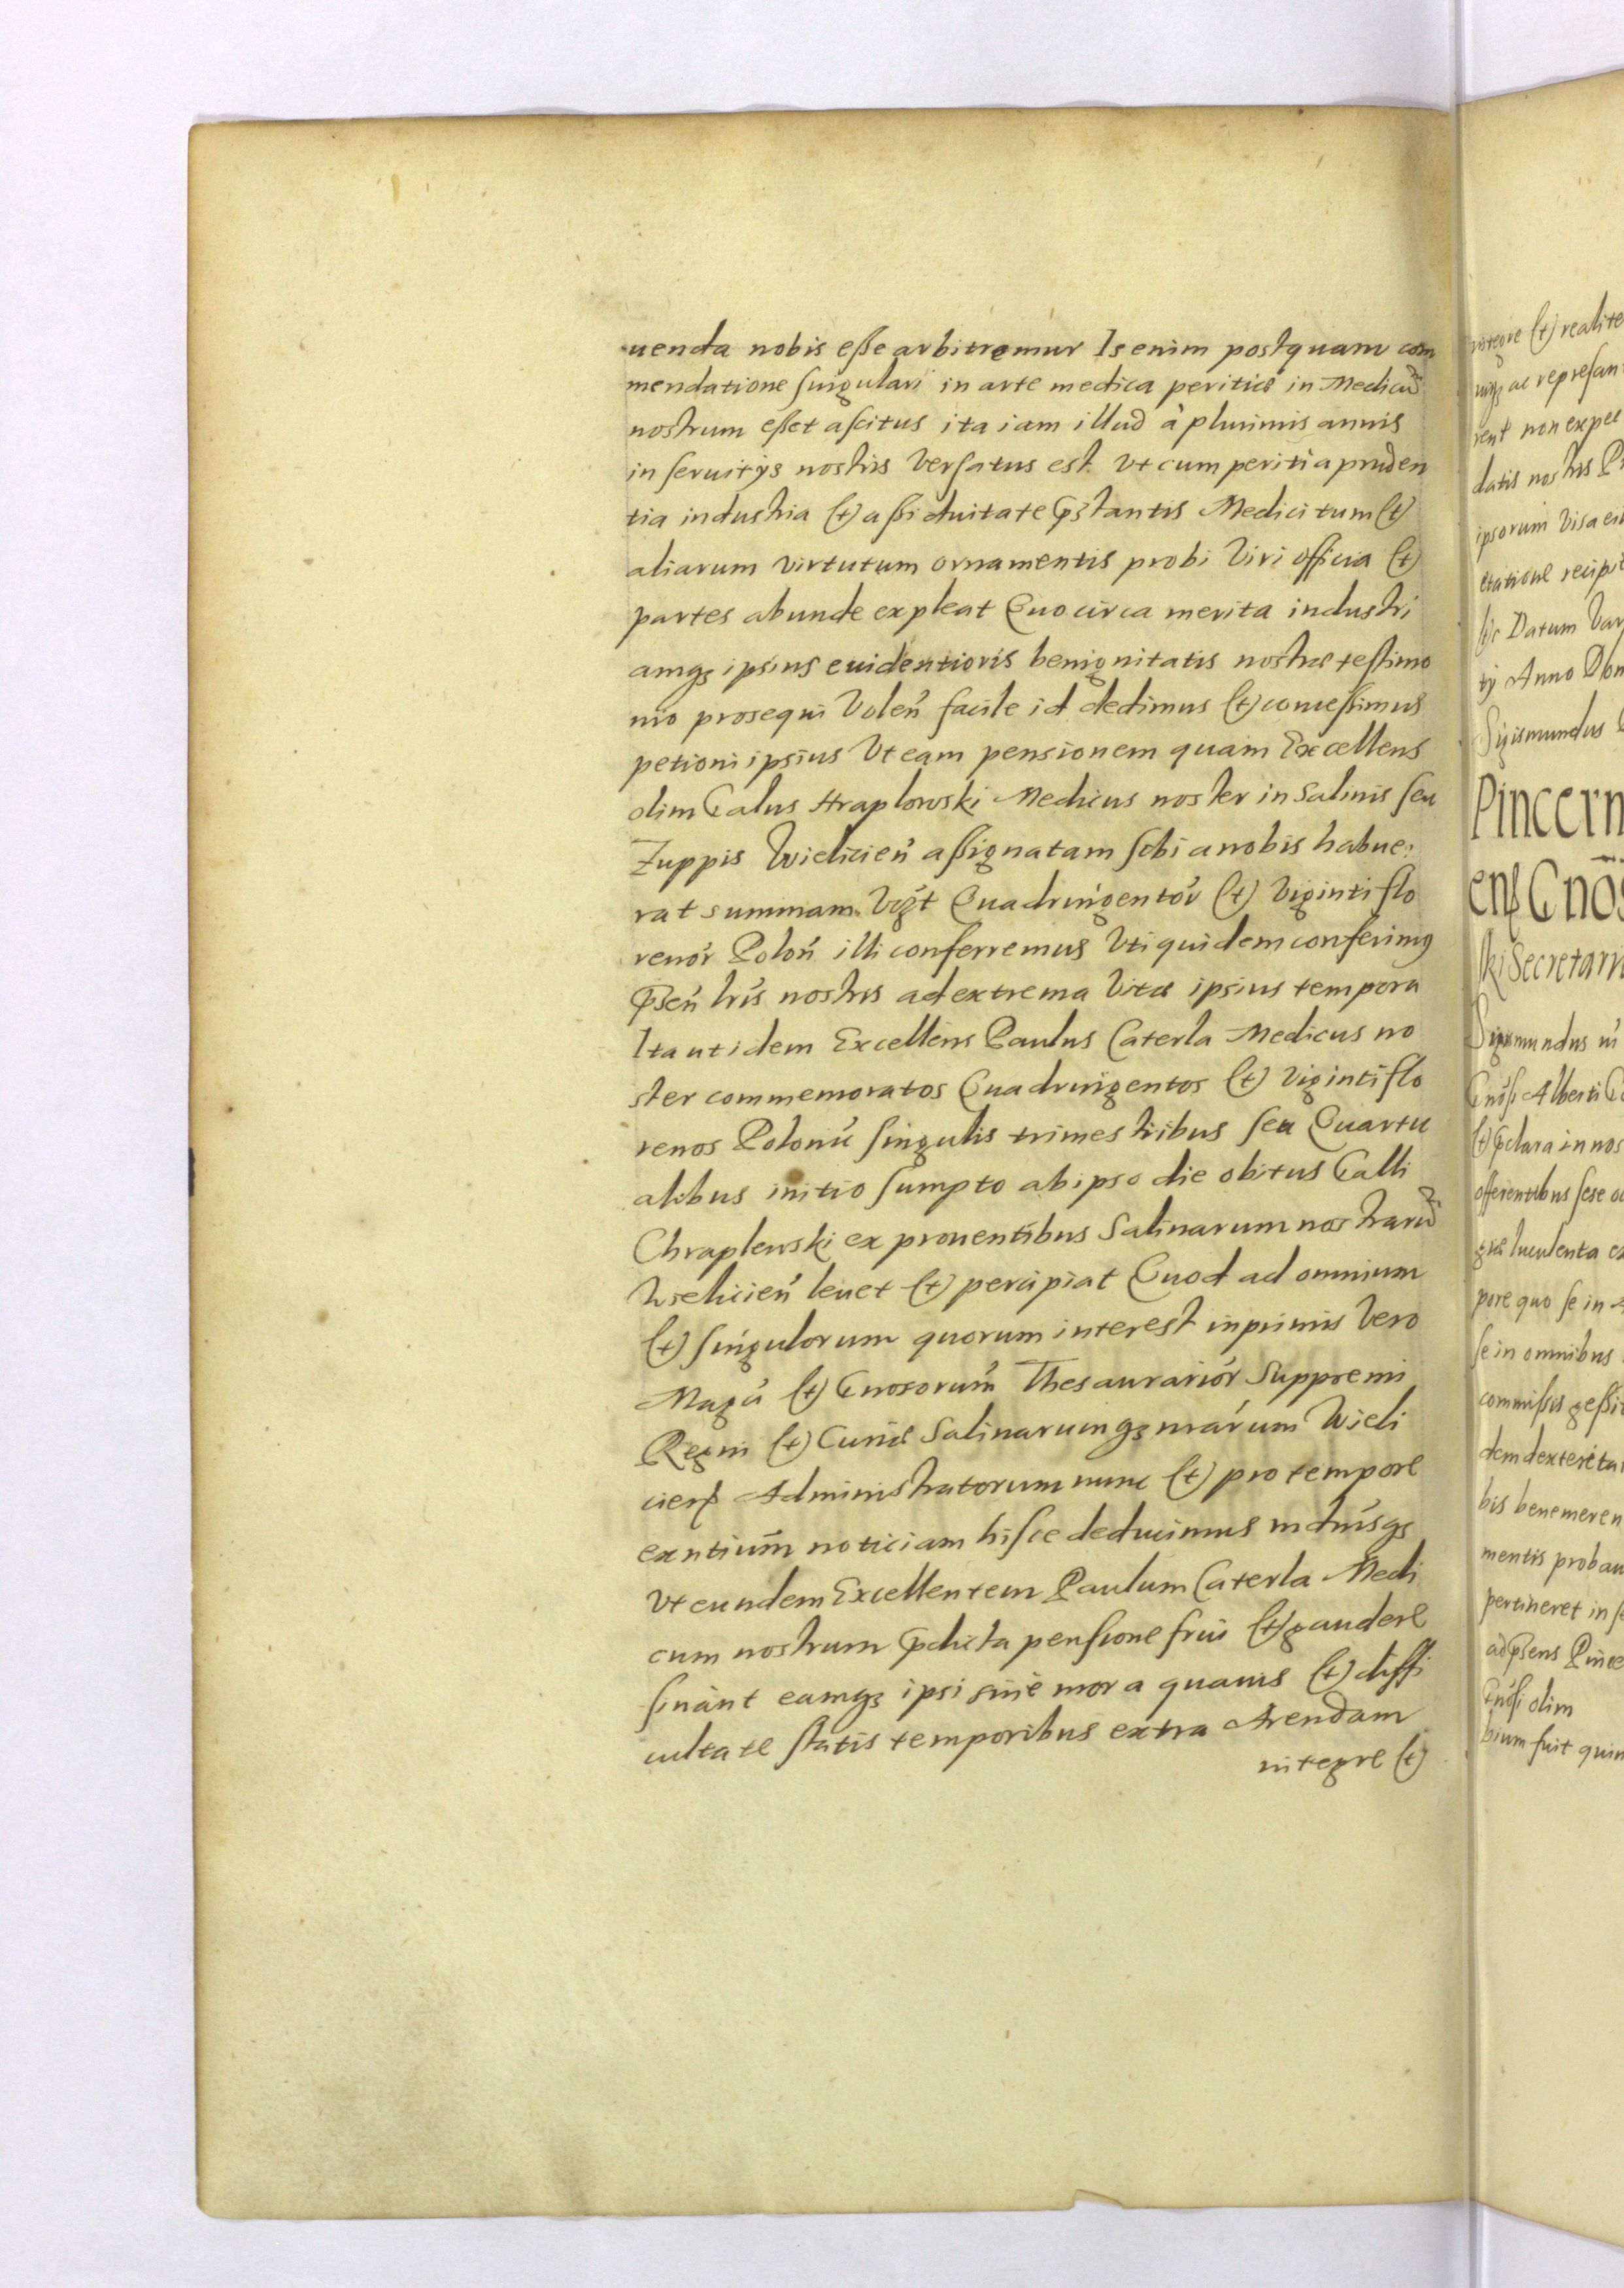 uenda nobis eſse arbitremur Is enim postquam com
mendatione ſingulari in arte medica peritiæ in Medicū
nostrum eſset aſcitus ita iam illud à plurimis annis
in ſeruitÿs nostris Verſatus est Vt cum peritia pruden
tia industria (et) aſsiduitate p̄stantis Medici tum (et)
aliarum virtutum ornamentis probi Viri officia (et)
partes abunde expleat Quocirca merita industri
amqꝫ ipsius euidentioris benignitatis nostræ teſtimo
nio prosequi Volen̄ facile id dedimus (et) conceſsimus
petioni ipsius Vt eam pensionem quam Excellens
olim Galus Hraplowski Medicus noster in Salinis ſeu
Zuppis Wielicien̄ aſsignatam ſibi a nobis habue:
rat summam. Vꝫt Quadringentor̄ (et) Viginti flo
renor̄ Polon̄ illi conferremus Vti quidem conferimꝰ
p̄sen̄ tr̄is nostris ad extrema Vitæ ipsius tempora
Ita ut idem Excellens Paulus Caterla Medicus no
ster commemoratos Quadringentos (et) Viginti flo
renos Polon̄ ſingulis trimestribus ſeu Quartu
alibus initio ſumpto ab ipso die obitus Galli
Chraplewski ex prouentibus Salinarum nostrarū
Wielicien̄ leuet (et) percipiat Quod ad omnium
(et) ſingulorum quorum interest inprimis Vero
Magū (et) Gnosorum̄ Thesaurarior̄ Suppremi
Regni (et) Curiæ Salinarumqꝫ nrārum Wieli
cienſ Administratorum nunc (et) pro tempore
exn̄tium̄ noticiam hiſce deducimus mdn̄isqꝫ
Vt eundem Excellentem Paulum Caterla Medi
cum nostrum p̄dicta penſione frui (et) gaudere
ſinant eamqꝫ ipsi sine mora quauis (et) diffi
cultate ſtatis temporibus extra Arendam
integre (et)
integre (et) realite
uiqꝫ ac repreſan
rent non expec
datis nostris P
ipsorum Visa ei
etatione recipi
ſis Datum Var
ty Anno Dom
Sigismundus
Pincern
enſ Gnōs
ſki Secretari
Sigismundus
Gnōſi Alberti G
(et) p̄clara in nos
offerentibus ſese
luculenta e
pore quo ſe in
ſe in omnibus
commiſsis geſsi
dem dexterita
bis benemeren
mentis probau
pertineret in ſ
ad p̄sens Pince
Gnōſi olim
bium fuit quin